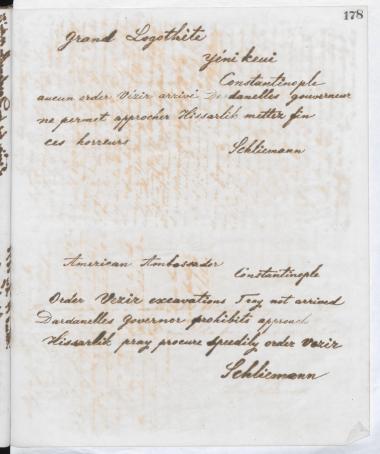 178
Grand Logothète
Yénikeui
Constantinople
aucun order Vézir arrivé Dardanelles gouverneur
ne permet approcher Hissarlik mettez fin
ces horreurs
Schliemann
American Ambassador
Constantinople
Order Vezir excavations Troy not arrived
Dardanelles Governor prohibits approach
Hissarlik pray procure speedily order Vezir
Schliemann